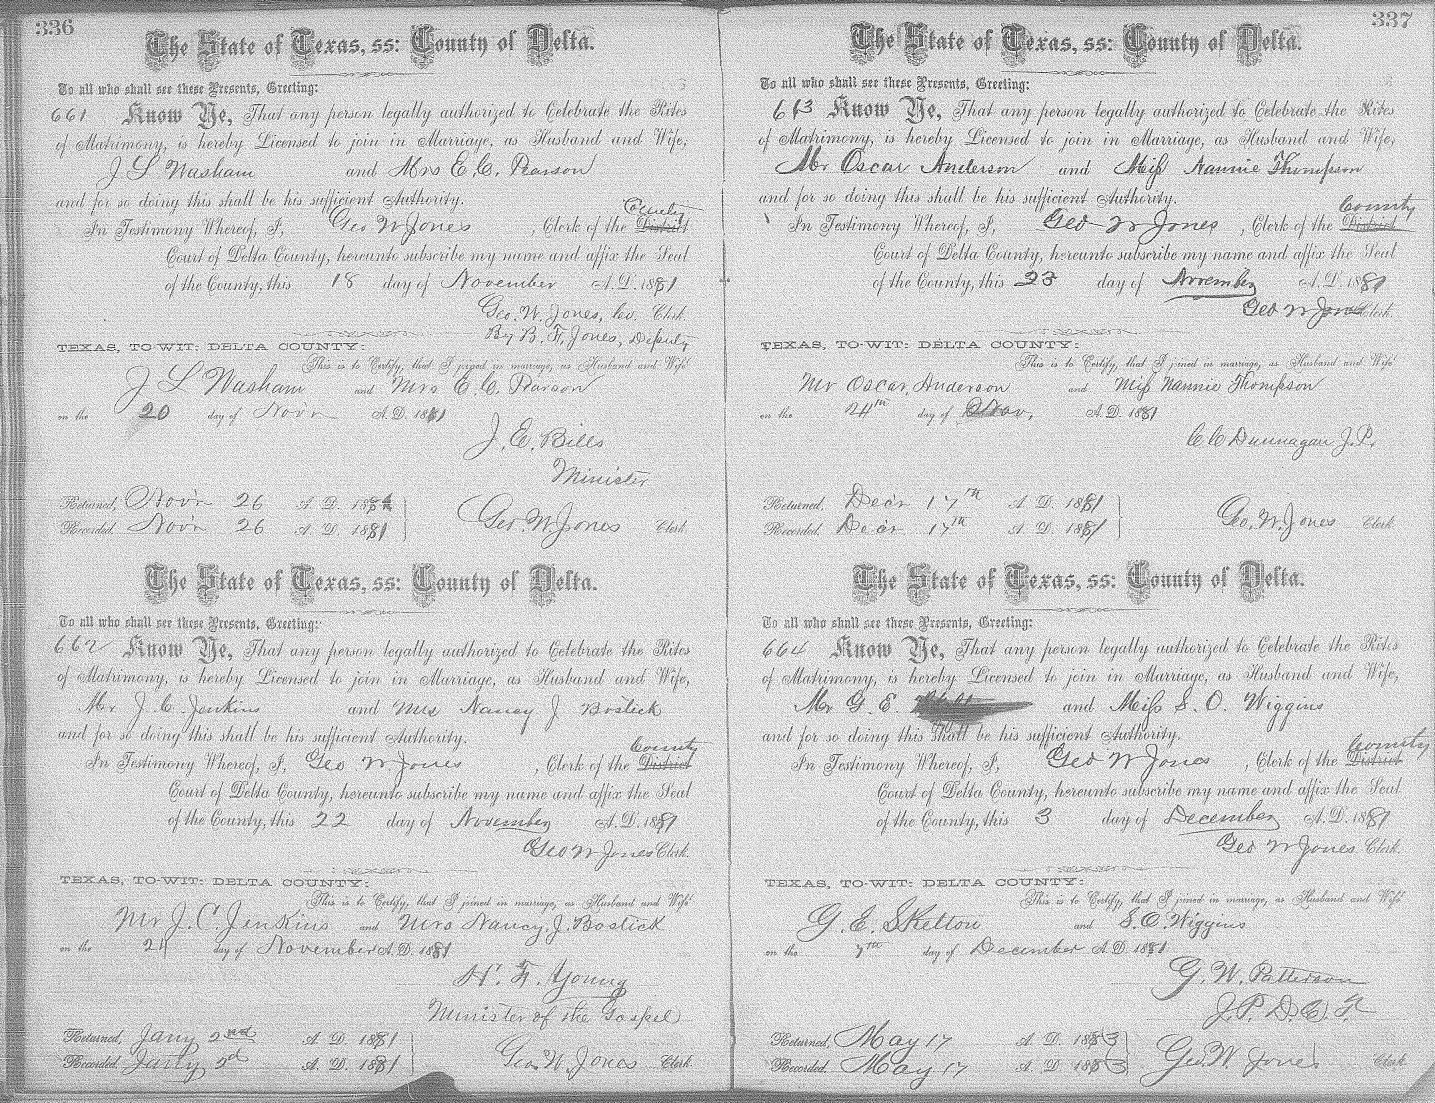 336
The State of Texas, ss: County of Delta.
To all who shall see these Presents, Greeting:
661 Know Ye, That any person legally authorized to Celebrate the Rites
of Matrimony, is hereby Licensed to join in Marriage, as Husband and Wife,
J L Washam and Mrs E. C. Pearson
and for so doing this shall be his sufficient Authority.
County
In Testimony Whereof, I, Geo W Jones, Clerk of the District
Court of Delta County, hereunto subscribe my name and affix the Seal
of the County, this 18 day of November A.D. 1881
Geo. W. Jones, Co. Clerk.
By B. F. Jones, Deputy
TEXAS, TO-WIT: DELTA COUNTY:
This is to Certify, that I joined in marriage, as Husband and Wife
J L Washam and Mrs E. C. Pearson
on the 20 day of Novr A.D. 1881
J. E. Bills
Minister
Returned, Nov'r 26 A.D. 1881
Recorded, Nov'r 26 A.D. 1881 Geo. W Jones Clerk
The State of Texas, ss: County of Delta.
To all who shall see these Presents, Greeting:
662 Know Ye, That any person legally authorized to Celebrate the Rites
of Matrimony, is hereby Licensed to join in Marriage, as Husband and Wife,
Mr J. C. Jenkins and Mrs Nancy J Bostick
and for so doing this shall be his sufficient Authority.
County
In Testimony Whereof, I, Geo W. Jones, Clerk of the District
Court of Delta County, hereunto subscribe my name and affix the Seal
of the County, this 22 day of November A.D. 1881
Geo W Jones Clerk.
TEXAS, TO-WIT: DELTA COUNTY:
This is to Certify, that I joined in marriage, as Husband and Wife
Mr J. C. Jenkins and Mrs Nancy, J. Bostick
on the day of November A.D. 1881
H. F. Young
Minister of the Gospel
Returned, Jany 2nd A.D. 1881
Recorded, Jany 2d A.D. 1881 Geo. W. Jones Clerk
337
The State of Texas, ss: County of Delta.
To all who shall see these Presents, Greeting:
663 Know Ye, That any person legally authorized to Celebrate the Rites
of Matrimony, is hereby Licensed to join in Marriage, as Husband and Wife,
Mr Oscar Anderson and Miss Nannie Thompson
and for so doing this shall be his sufficient Authority.
County
In Testimony Whereof, I, Geo W Jones, Clerk of the District
Court of Delta County, hereunto subscribe my name and affix the Seal
of the County, this 23 day of November A.D. 1881
Geo W Jones Clerk.
TEXAS, TO-WIT: DELTA COUNTY:
This is to Certify, that I joined in marriage, as Husband and Wife
Mr Oscar, Anderson and Miss Nannie Thompson
on the 24th day of Nov, A.D. 1881
C C Dunnagan J.P.
Returned, Dec'r 17th A.D. 1881
Recorded, Dec'r 17th A.D. 1881 Geo. W. Jones Clerk
The State of Texas, ss: County of Delta.
To all who shall see these Presents, Greeting:
664 Know Ye, That any person legally authorized to Celebrate the Rites
of Matrimony, is hereby Licensed to join in Marriage, as Husband and Wife,
Mr G. E. and Miss S. O. Wiggins
and for so doing this shall be his sufficient Authority.
County
In Testimony Whereof, I, Geo W Jones, Clerk of the District
Court of Delta County, hereunto subscribe my name and affix the Seal
of the County, this 3 day of December A.D. 1881
Geo W Jones Clerk.
TEXAS, TO-WIT: DELTA COUNTY:
This is to Certify, that I joined in marriage, as Husband and Wife
G. E. Skelton and S. O. Wiggins
on the 7th day of December A.D. 1881
G. W. Patterson
J. P. D. C. T
Returned, May 17 A.D. 1883
Recorded, May 17 A.D. 1883 Geo. W Jones Clerk